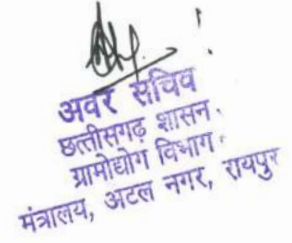 अवर सचिव
छत्तीसगढ़ शासन
ग्रामोद्योग विभाग
मंत्रालय, अटल नगर, रायपुर